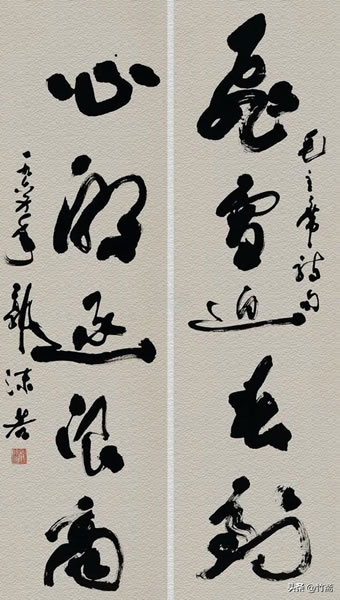 毛主席詩句
飛雪迎春到
心潮逐浪高
一九六 年
郭沫若
头条 @竹